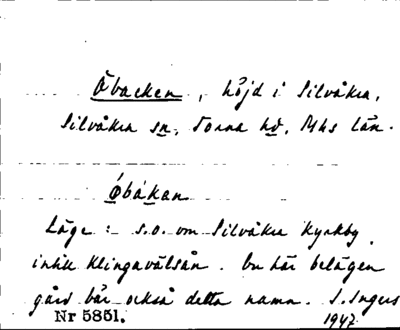 Öbacken, höjd i Silvåkra,
Silvåkra sn, Torna hd, Mhs län.
Öbákan
Läge: s.o. om Silvåkra kyrkby
intill Klingavälsån. En här belägen
gård bär också detta namn. S. Ingers
Nr 5851. 1947